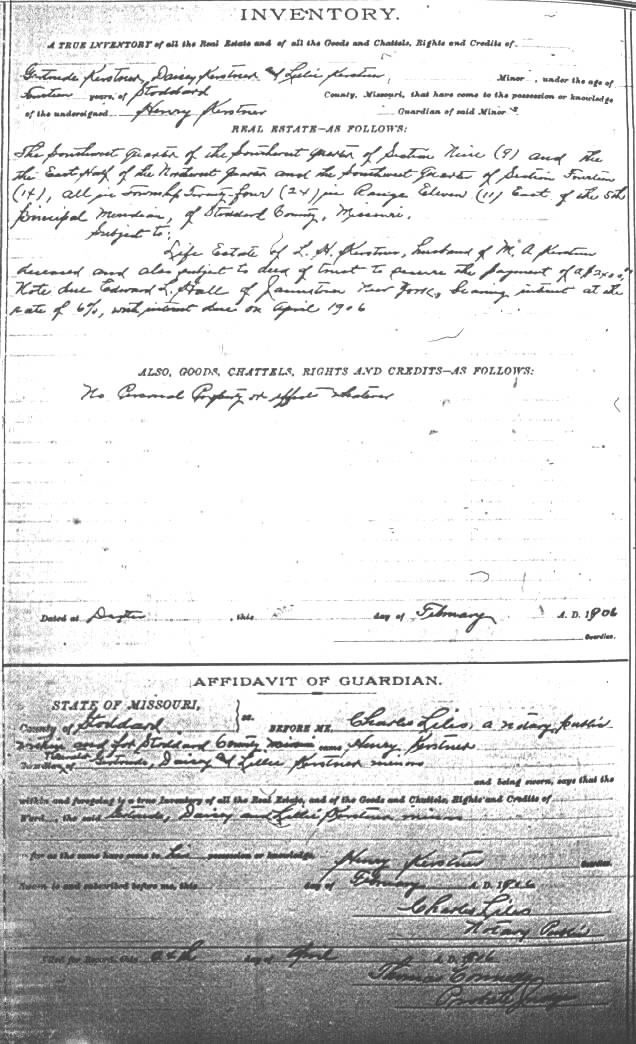 INVENTORY.
A TRUE INVENTORY of all the Real Estate and of all the Goods and Chattels, Rights and Credits of
Gertrude Kerstner, Daisey Kerstner & Lillie Kerstner, Minor, under the age of
fourteen years, of Stoddard County, Missouri, that have come to the possession or knowledge
of the undersigned Henry Kerstner Guardian of said Minors
REAL ESTATE—AS FOLLOWS:
The Southwest Quarter of the Southwest Quarter of Section Nine (9) and the
the East Half of the Northwest Quarter and the Southwest Quarter of Section Fourteen
(14), all in Township Twenty four (24) in Range Eleven (11) East of the 5th
Principal Meridian, of Stoddard County, Missouri.
Subject to:
Life Estate of L. H. Kerstner, husband of M. A. Kerstner
deceased and also subject to deed of trust to secure the payment of a
Note due Edward L. Hall of Jamestown New York, bearing interest at the
rate of 6%, with interest due on April 1906
ALSO, GOODS, CHATTELS, RIGHTS AND CREDITS—AS FOLLOWS:
No Personal Property or effects whatever
Dated at Dexter, this day of February A. D. 1906
Guardian.
AFFIDAVIT OF GUARDIAN.
STATE OF MISSOURI,
County of Stoddard ss. BEFORE ME, Charles Liles, a notary public
within and for Stoddard County came Henry Kerstner
of Gertrude, Daisy & Lillie Kerstner minors
and being sworn, says that the
within and foregoing is a true Inventory of all the Real Estate, and of the Goods and Chattels, Rights and Credits of
Ward the said Gertrude, Daisey and Lillie Kerstner minors
so far as the same have come to his possession or knowledge. Henry Kerstner Guardian.
Sworn to and subscribed before me, this day of February A. D. 1906
Charles Liles
Notary Public
Filed for Record, this day of April A. D. 1906
Thomas Connelly
Probate Judge